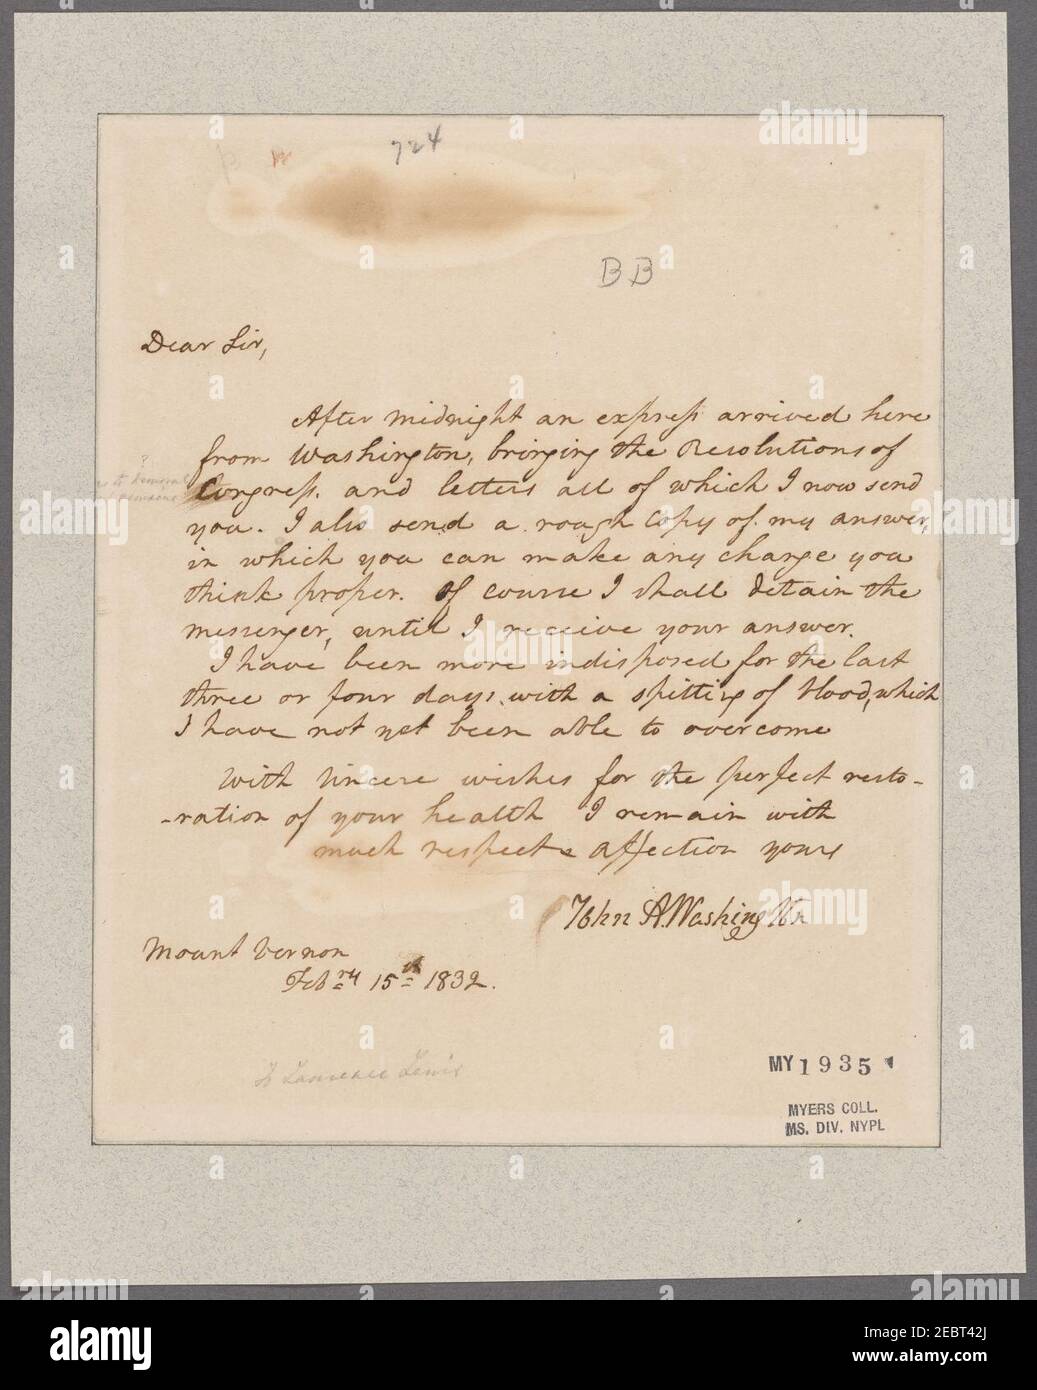 724
B B
Dear Sir,
After midnight an express arrived here
from Washington, bringing the Resolutions of
Congress. and letters all of which I now send
you. I also send a rough copy of my answer,
in which you can make any change you
think proper. Of course I shall detain the
messenger, until I receive your answer.
I have been more indisposed for the last
three or four days, with a spitting of blood, which
I have not yet been able to overcome
With sincere wishes for the perfect resto-
-ration of your health I remain with
much respect & affection yours
John A. Washington
Mount Vernon
Febry 15th 1832.
To Lawrence Lewis
MY 1935
MYERS COLL.
MS. DIV. NYPL
alamy
Image ID: 2EBT42J
www.alamy.com